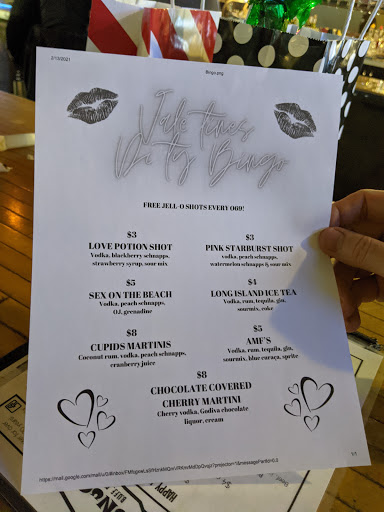 2/13/2021
Bingo.png
Valentines
Dirty Bingo
FREE JELL-O SHOTS EVERY O69!
$3
LOVE POTION SHOT
Vodka, blackberry schnapps,
strawberry syrup, sour mix
$3
PINK STARBURST SHOT
vodka, peach schnapps,
watermelon schnapps & sour mix
$5
SEX ON THE BEACH
Vodka, peach schnapps,
OJ, grenadine
$4
LONG ISLAND ICE TEA
Vodka, rum, tequila, gin,
sourmix, coke
$8
CUPIDS MARTINIS
Coconut rum, vodka, peach schnapps,
cranberry juice
$5
AMF'S
Vodka, rum, tequila, gin,
sourmix, blue curaça, sprite
$8
CHOCOLATE COVERED
CHERRY MARTINI
Cherry vodka, Godiva chocolate
liquor, cream
1/1
HAPPY